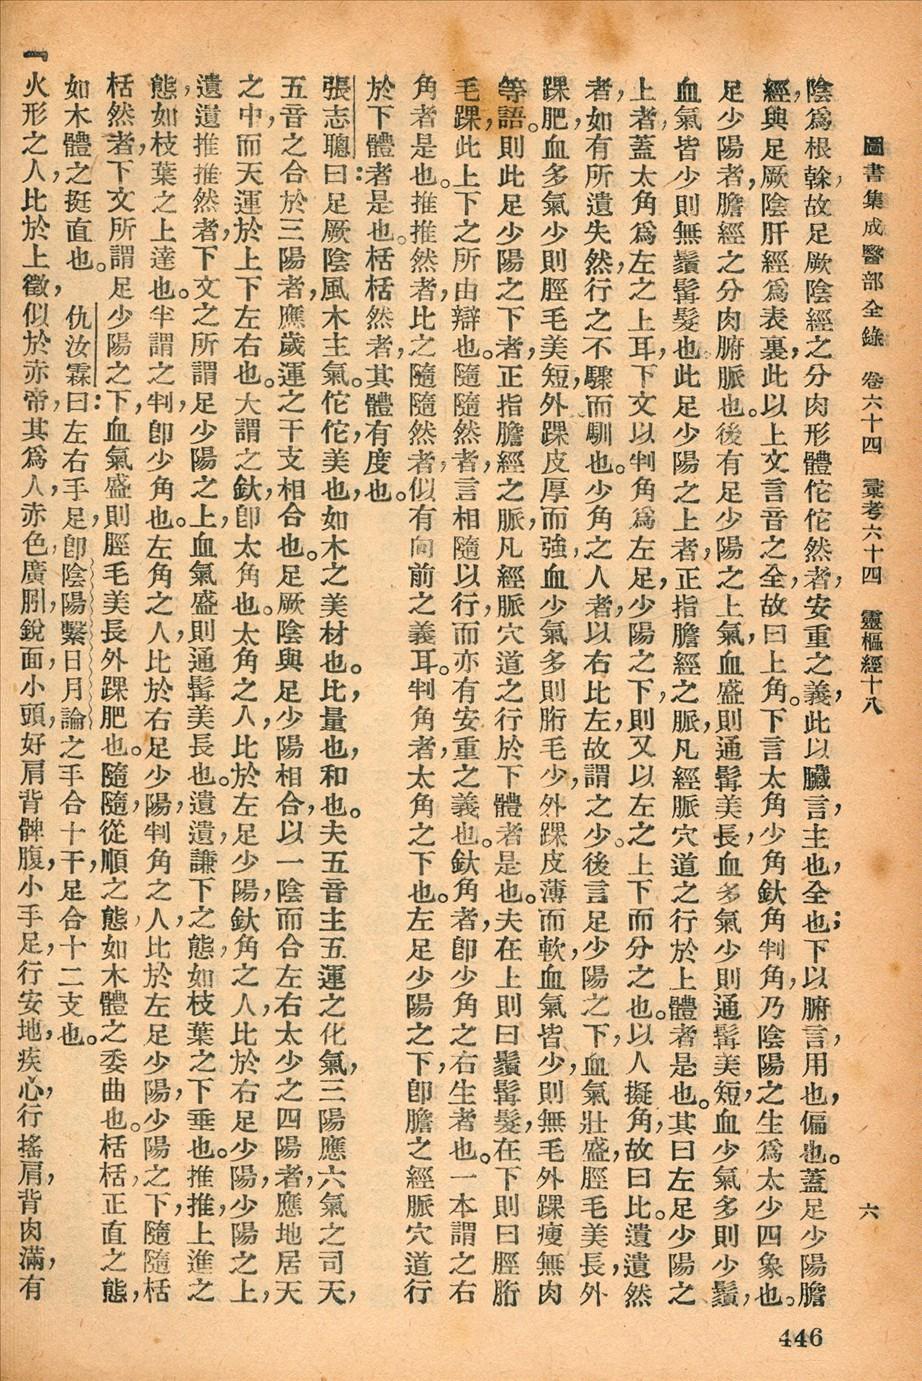 圖書集成醫部全錄　卷六十四　彙考六十四　靈樞經十八
六
陰爲根榦，故足厥陰經之分肉形體佗佗然者，安重之義，此以臟言，主也，全也；下以腑言，用也，偏也。蓋足少陽膽
經，與足厥陰肝經爲表裏，此以上文言音之全，故曰上角。下言太角少角釱角判角，乃陰陽之生爲太少四象也。
足少陽者，膽經之分肉腑脈也。後有足少陽之上，氣血盛則通髯美長，血多氣少則通髯美短，血少氣多則少鬚，
血氣皆少則無鬚髯髮也。此足少陽之上者，正指膽經之脈，凡經脈穴道之行於上體者是也。其曰左足少陽之
上者，蓋太角爲左之上耳，下文以判角爲左足，少陽之下，則又以左之上下而分之也。以人擬角，故曰比。遺遺然
者，如有所遺失然，行之不驟而馴也。少角之人者，以右比左，故謂之少。後言足少陽之下，血氣壯盛，脛毛美長，外
踝肥，血多氣少則脛毛美短，外踝皮厚而強，血少氣多則胻毛少，外踝皮薄而軟，血氣皆少，則無毛外踝瘦無肉
等語。則此足少陽之下者，正指膽經之脈，凡經脈穴道之行於下體者是也。夫在上則曰鬚髯髮，在下則曰脛胻
毛踝，此上下之所由辯也。隨隨然者，言相隨以行，而亦有安重之義也。釱角者，卽少角之右生者也。一本謂之右
角者是也。推推然者，比之隨隨然者，似有向前之義耳。判角者，太角之下也。左足少陽之下，卽膽之經脈穴道行
於下體者是也。栝栝然者，其體有度也。
張志聰曰：足厥陰風木主氣。佗佗，美也，如木之美材也。比，量也，和也。夫五音主五運之化氣，三陽應六氣之司天，
五音之合於三陽者，應歲運之干支相合也。足厥陰與足少陽相合，以一陰而合左右太少之四陽者，應地居天
之中，而天運於上下左右也。大謂之釱，卽太角也。太角之人，比於左足少陽，釱角之人，比於右足少陽，少陽之上，
遺遺推推然者，下文之所謂足少陽之上，血氣盛，則通髯美長也。遺遺，謙下之態，如枝葉之下垂也。推推，上進之
態，如枝葉之上達也。半謂之判，卽少角也。左角之人，比於右足少陽，判角之人，比於左足少陽，少陽之下，隨隨栝
栝然者，下文所謂足少陽之下，血氣盛則脛毛美長外踝肥也。隨隨，從順之態，如木體之委曲也。栝栝，正直之態，
如木體之挺直也。　仇汝霖曰：左右手足，卽陰陽繫日月論之手合十干，足合十二支也。
火形之人，比於上徵，似於赤帝，其爲人，赤色，廣䏖，銳面，小頭，好肩背髀腹，小手足，行安地，疾心，行搖肩，背肉滿，有
446